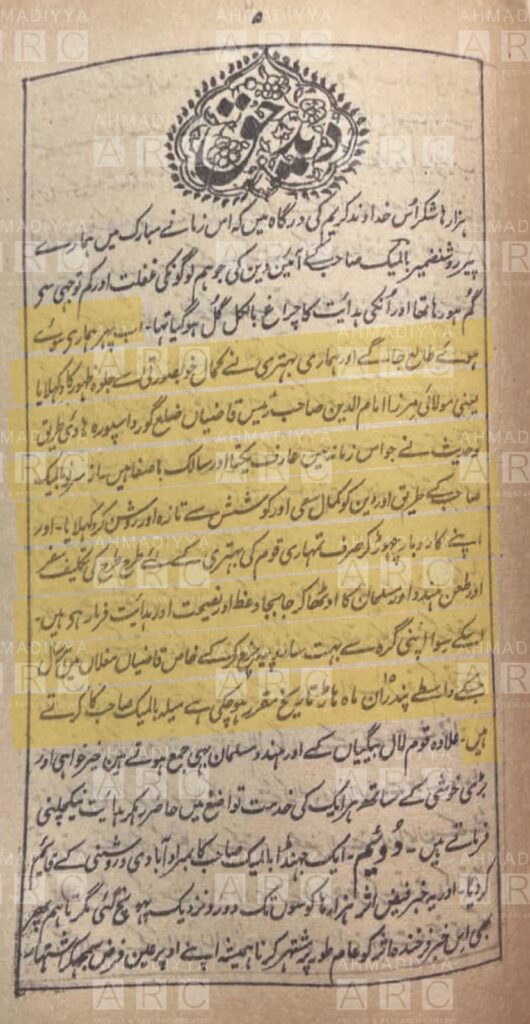 ۵
دید حق
ہزارہا شکر اُس خداوند کریم کی درگاہ میں کہ اس زمانے مبارک میں ہمارے
پیر روشنضمیر بالمیک صاحب کے آئین دین کی جو ہم لوگونکی غفلت اور کم توجہی سے
گم ہو رہا تھا اور اُنکی ہدائت کا چراغ بالکل گُل ہو گیا تہا۔ اب پہر ہماری سوئے
ہوئے طالع جاگے اور ہماری بہتری نے کمال خوبصورتی سے جلوہ ظہور کا دکہلایا
یعنی مولائی میرزا امام الدین صاحب رئیس قاضیاں ضلع گورداسپورہ ہادئی طریق
وحیٹ نے جو اس زمانہ مین عارف یکتا اور سالک باصفا ہیں از سر نو بالمیک
صاحب کے طریق اور دین کو کمال سعی اور کوشش سے تازہ اور روشن کر دکہلایا۔ اور
اپنے کاروبار چھوڑ کر صرف تمہاری قوم کی بہتری کے لئے طرح طرح کی تکلیف سفر
اور طعن ہندو اور مسلمان کا اوٹھا کر جا بجا وعظ اور نصیحت اور ہدائت فرما رہے ہیں۔
اسکے سوا اپنی گرہ سے بہت سا روپیہ خرچ کر کے خاص قاضیاں مغلاں میں
جسکے واسطے پندرہ ماہ ہاڑ تاریخ مقرر ہو چکی ہے میلہ بالمیک صاحب کا کرتے
ہیں۔ علاوہ قوم لال بیگیاں کے اور ہندو مسلمان بہی جمع ہوتے ہین خیر خواہی اور
بڑی خوشی کے ساتھ ہر ایک کی خدمت تواضع میں حاضر رہکر ہدایت نیکچلنی
فرماتے ہیں۔ دوئیم۔ ایک جہنڈا بالمیک صاحب کا بمراد آبادی و روشنی کے قائیم
کر دیا۔ اور یہ خبر فیض اثر ہزارہا کوسوں تک دور و نزدیک پہونچ گئی مگر تا ہم پھر
بھی اس خبر فرخندہ اثر کو عام طور پر مشتہر کرنا ہمیشہ اپنے اوپر عین فرض سمجہکر اشتہار
AHMADIYYA
ARC
ARCHIVE & RESEARCH CENTRE